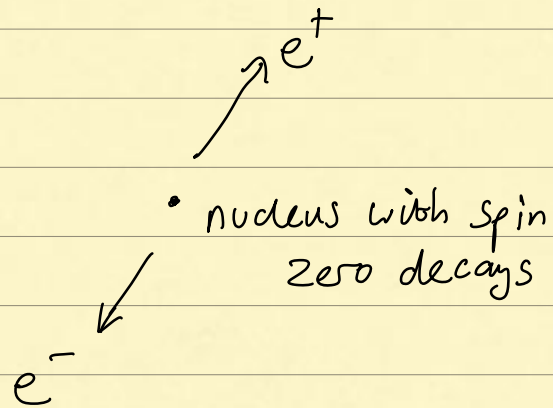 e⁺
nucleus with spin
zero decays
e⁻